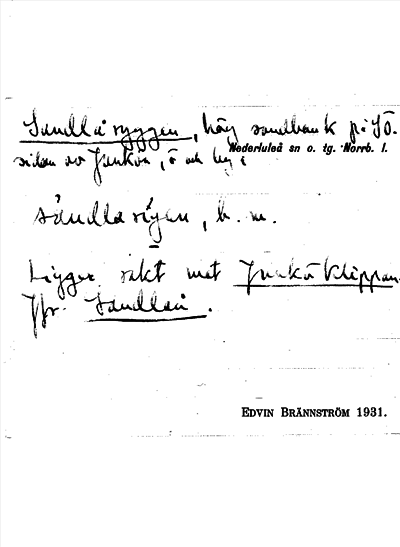 Sandlåryggen, hög sandbank på SÖ.
sidan av Junkön, ö och by i
Nederluleå sn o. tg. Norrb. l.
sándlarýgen, b. m.
Ligger rakt mot Junkö Klippan.
Jfr. Sandlån.
EDVIN BRÄNNSTRÖM 1931.